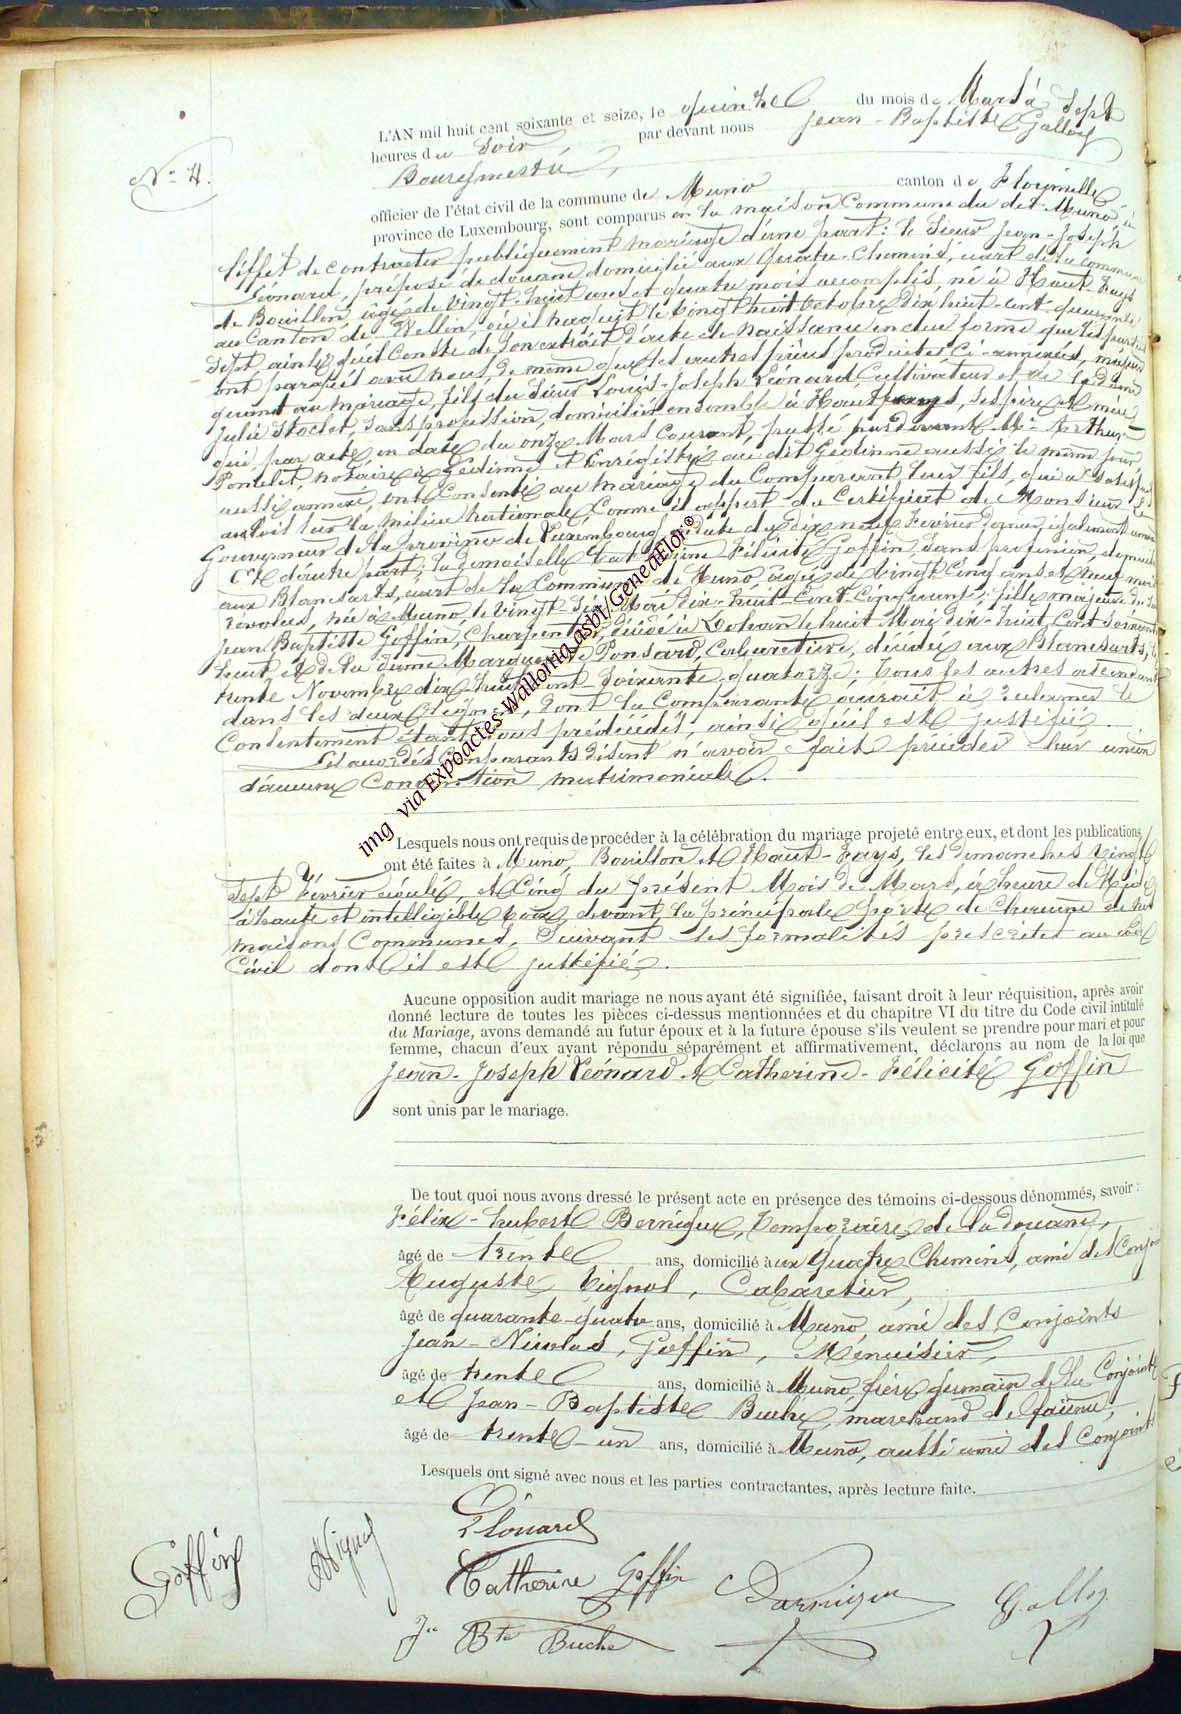 N° 4.
L'AN mil huit cent soixante et seize, le quinze du mois de Mars à Sept
heures du Soir par devant nous Jean-Baptiste Galloy
Bourgmestre,
officier de l'état civil de la commune de Muno canton de Florenville
province de Luxembourg, sont comparus en la maison Commune du dit Muno à
l'effet de contracter publiquement mariage d'une part: le Sieur Jean-Joseph
Léonard, préposé de douane domicilié aux Quatre-Chemins, écart de la commune
de Bouillon, âgé de vingt-huit ans et quatre mois accomplis, né à Haut-Fays
au Canton de Wellin où il naquit le vingt huit Octobre dix huit-cent-quarante
Sept, ainsi qu'il Conste de son extrait d'acte de naissance en due forme que les parties
ont paraphé avec nous de même que les autres pièces produites, Ci-annexées, majeur
quant au mariage, fils du Sieur Louis-Joseph Léonard Cultivateur et de la dame
Julie Stoclet, Sans profession, domiciliés ensemble à Hautfays, ses père et mère
qui, par acte en date du onze Mars Courant, passé pardevant Me Arthur
Poncelet, notaire à Gedinne et Enrégistré au dit Gedinne aussi le même jour
aussi annexé, ont Consenti au mariage du Comparant leur fils, qui a Satisfait
aux lois sur la milice nationale, Comme il appert du Certificat de Monsieur le
Gouverneur de la province de Luxembourg en date du dix neuf Février dernier, également annexé
Et d'autre part; la demoiselle Catherine Félicité Goffin, Sans profession, demeurant
aux Blancsarts, écart de la Commune de Muno, âgée de vingt Cinq ans et neuf mois
révolus, née à Muno, le vingt Six Mai dix-huit-Cent-Cinquante, fille majeure du Sieur
Jean Baptiste Goffin, Charpentier décédé à Dohan le huit Mai dix-huit Cent Soixante
huit, et de la dame Marguerite Ponsard, Cabaretière, décédée aux Blancsarts, le
trente Novembre dix-huit-Cent-Soixante-quatorze; Tous les autres ascendants
dans les deux lignes, dont la Comparante aurait à réclamer le
Consentement étant tous prédécédés, ainsi qu'il est justifié.
Lesquels Comparants disent n'avoir fait précéder leur union
d'aucune Convention matrimoniale.
Lesquels nous ont requis de procéder à la célébration du mariage projeté entre eux, et dont les publications
ont été faites à Muno, Bouillon et Haut-Fays, les dimanches vingt
Sept Février écoulé, et Cinq du présent Mois de Mars, à heure de Midi
à haute et intelligible voix, devant la principale porte de Chacune de nos
maisons Communes, Suivant les formalités prescrites au code
Civil dont il est justifié.
Aucune opposition audit mariage ne nous ayant été signifiée, faisant droit à leur réquisition, après avoir
donné lecture de toutes les pièces ci-dessus mentionnées et du chapitre VI du titre du Code civil intitulé
du Mariage, avons demandé au futur époux et à la future épouse s'ils veulent se prendre pour mari et pour
femme, chacun d'eux ayant répondu séparément et affirmativement, déclarons au nom de la loi que
Jean-Joseph Léonard et Catherine-Félicité Goffin
sont unis par le mariage.
De tout quoi nous avons dressé le présent acte en présence des témoins ci-dessous dénommés, savoir:
Félix-hubert Bernique, Temporaire de la douane,
âgé de trente ans, domicilié aux Quatre Chemins, ami des Conjoints
Auguste Vignol, Cabaretier,
âgé de quarante-quatre ans, domicilié à Muno, ami des Conjoints
Jean-Nicolas, Goffin, Menuisier,
âgé de trente ans, domicilié à Muno, frère germain de la Conjointe
et Jean-Baptiste Buche, marchand de faïence,
âgé de trente-un ans, domicilié à Muno, aussi ami des Conjoints
Lesquels ont signé avec nous et les parties contractantes, après lecture faite.
Léonard
Goffin AVignol Catherine Goffin Darnique Galloy
Jn Bte Buche
img via Expoactes-Wallonia asbl/GeneaFlor®